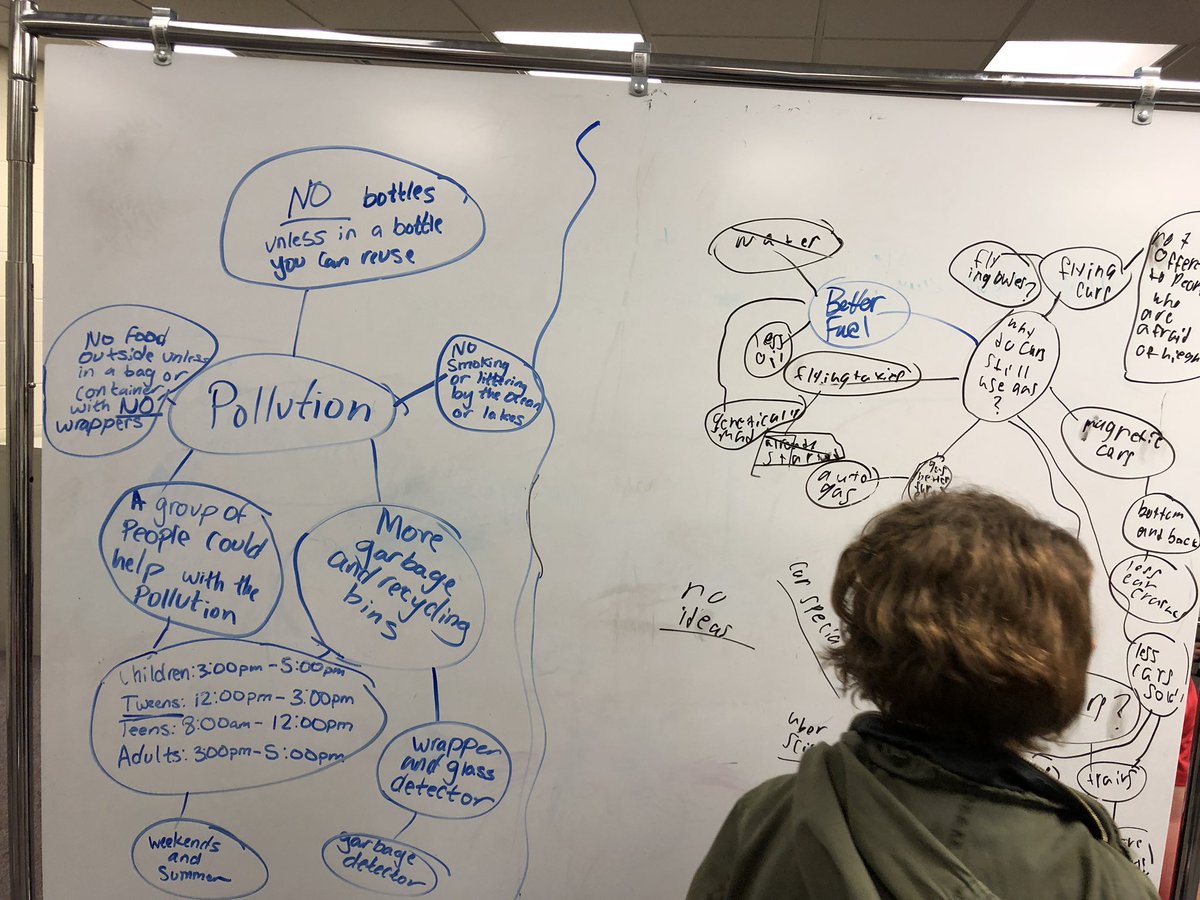 NO bottles
unless in a bottle
you can reuse
No Food
outside unless
in a bag or
container
with NO
wrappers
Pollution
NO
Smoking
or littering
by the ocean
or lakes
A group of
People could
help with the
Pollution
More
garbage
and recycling
bins
Children: 3:00pm - 5:00pm
Tweens: 12:00pm - 3:00pm
Teens: 8:00am - 12:00pm
Adults: 3:00pm - 5:00pm
weekends
and
summer
wrapper
and glass
detector
garbage
detector
water
Better
Fuel
less
oil
flying
cars
why
do cars
still
use gas
?
auto
gas
magnetic
cars
bottom
and back
less
car
less
cars
sold
trains
no
ideas
not
to
who
are
afraid
of
car